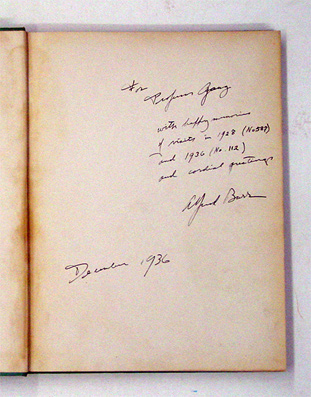 For
with happy memories
of visits in 1928
and 1936 (No. 112)
and cordial greetings
Alfred Barr
December 1936